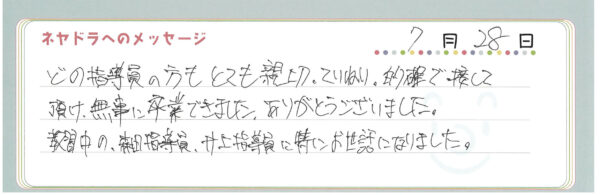 ネヤドラへのメッセージ
7月28日
どの指導員の方もとても親切、ていねい、的確で接して
頂け、無事に卒業できました。ありがとうございました。
教習中の、細田指導員、井上指導員に特にお世話になりました。